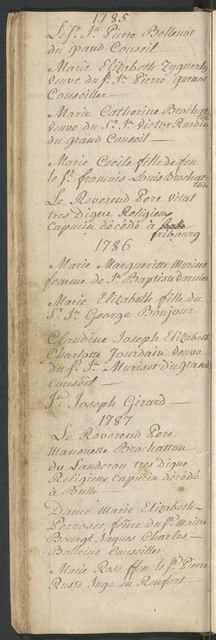 1785
Le Sr. Jn. Pierre Bellenot
du grand Conseil
Marie Elizabeth
veuve du Sr. Jn. Pierre quenot
Conseiller
Marie Catherine Brochatton
veuve du Sr. Jn. Victor Ruedin
du grand Conseil
Marie Cecile fille de feu
le Sr. francois Louis Brochatton
Le Reverend Pere Vital
tres Digne Religieux
Capucin décédé à
fribourg
1786
Marie Margueritte Muriset
femme de Jn. Baptiste
Marie Elizabeth fille du
Sr. Jn. George Bonjour
Claudine Joseph Elizabeth
Charlotte Jourdain veuve
du Sr. Jn. Muriset du grand
Conseil
Jn. Joseph Gerard
1787
Le Reverend Pere
Mansuette Brochatton
du Landeron tres Digne
Religieux Capucin décédé
à Bulle
Dame Marie Elizabeth
Perroset, feme du Sr.
Bourgt. Jaques Charles
Conseiller
Marie Rose fem le Sr. Pierre
Ruste Juge en Renfort